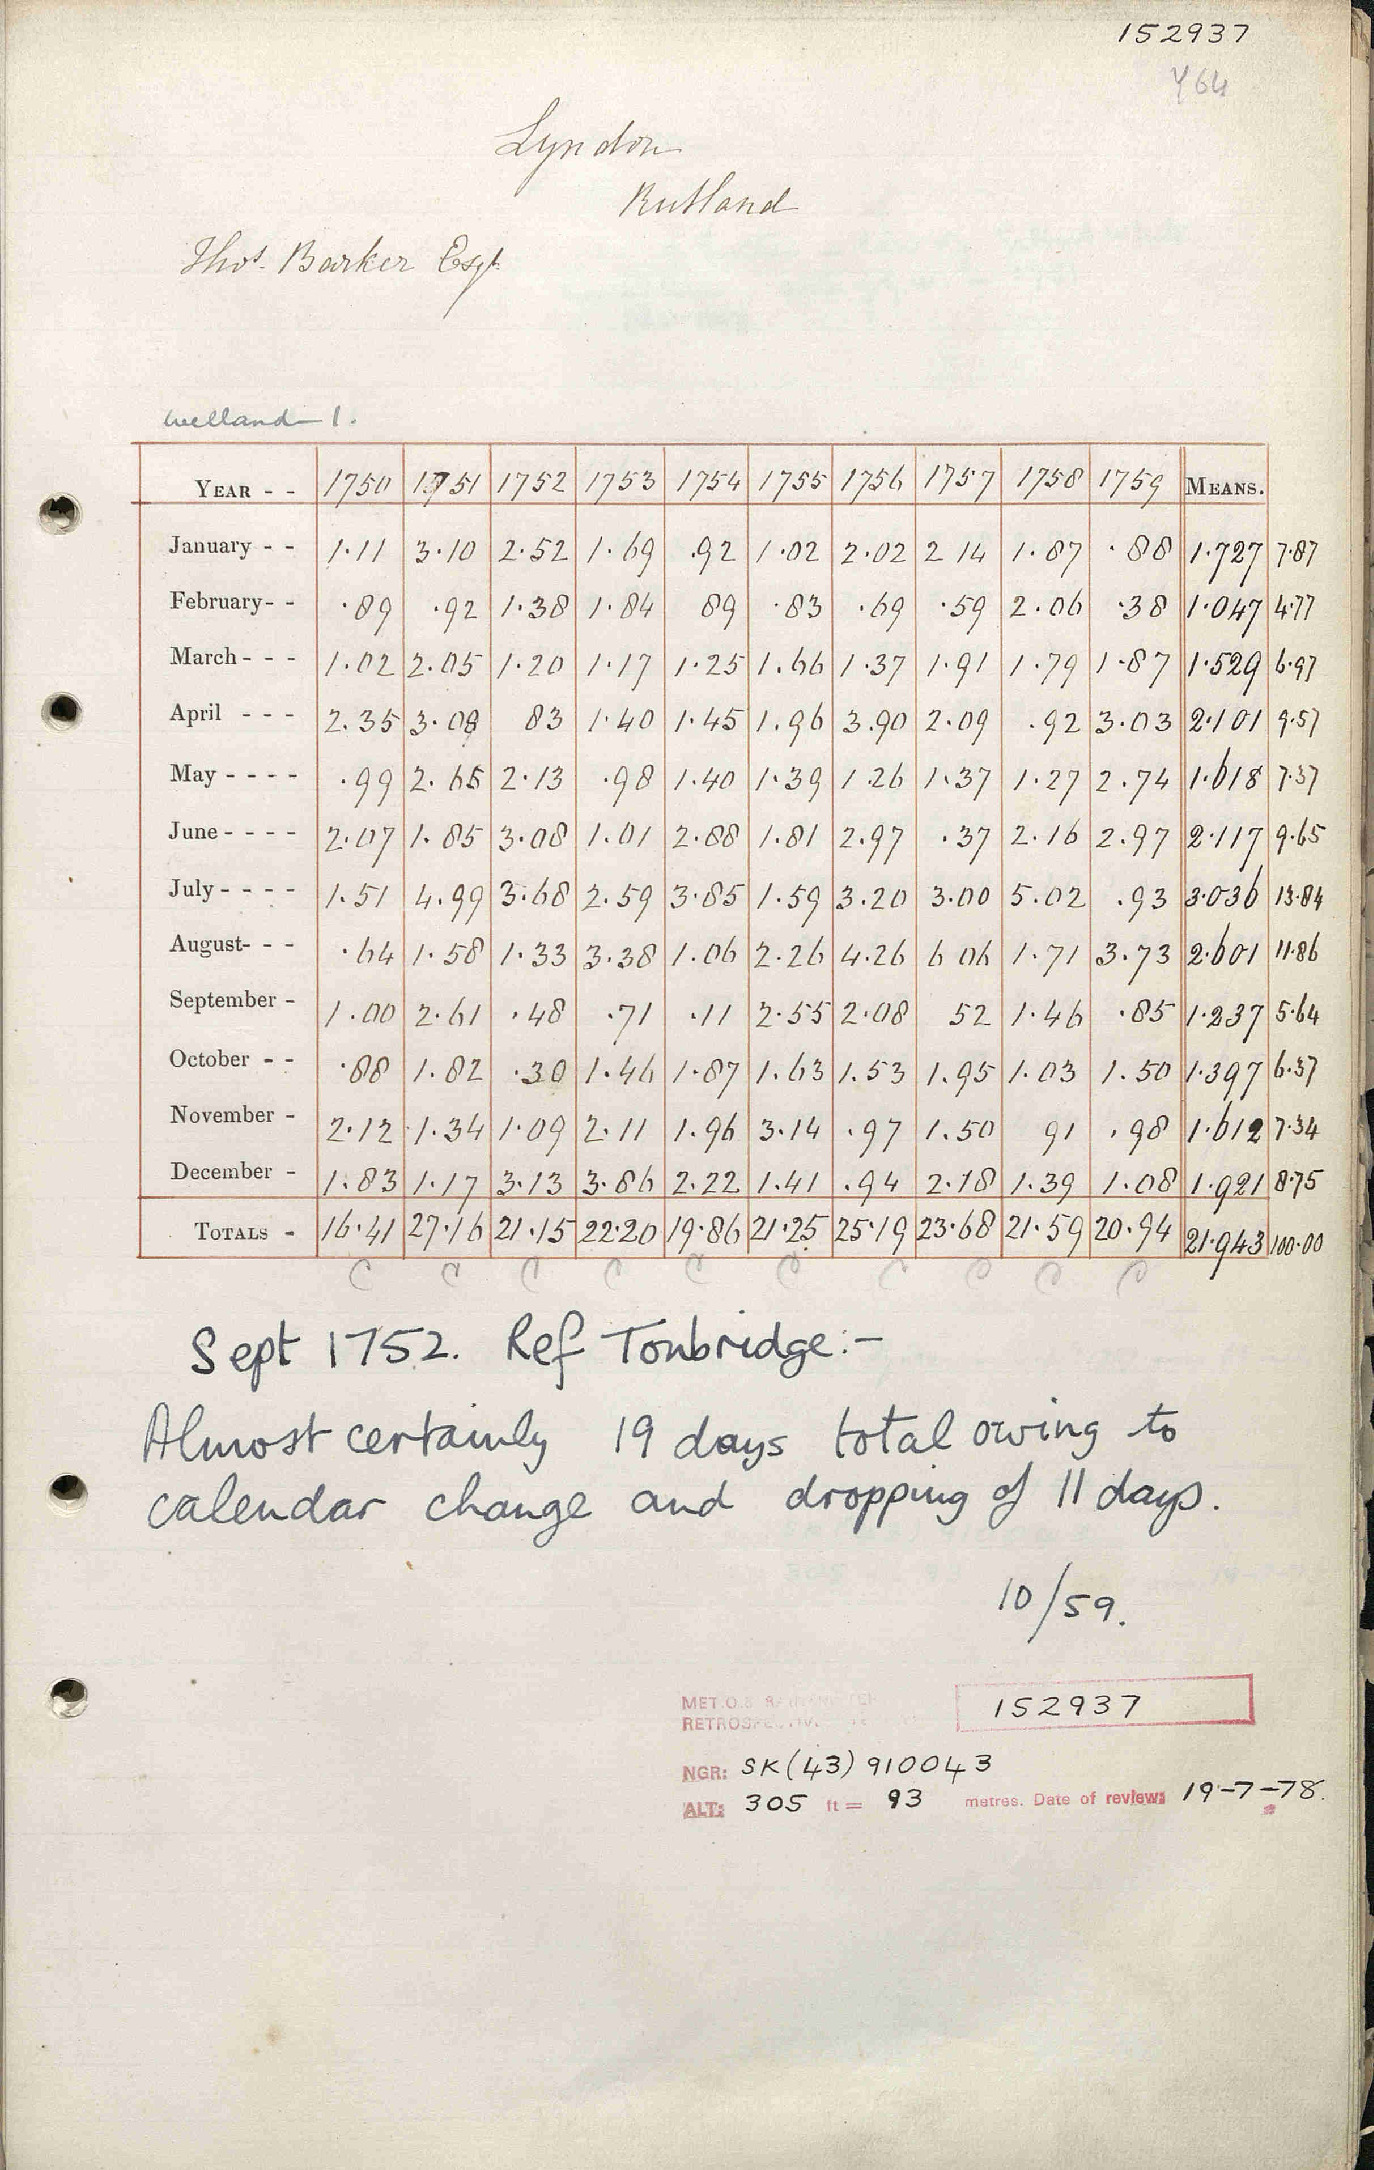 152937
Y64
Lyndon
Rutland
Thos. Barker Esqr
Welland 1.
YEAR - - 1750 1751 1752 1753 1754 1755 1756 1757 1758 1759 MEANS.
January - - 1.11 3.10 2.52 1.69 .92 1.02 2.02 2 14 1.87 .88 1.727 7.87
February- - .89 .92 1.38 1.84 89 .83 .69 .59 2.06 .38 1.047 4.77
March - - - 1.02 2.05 1.20 1.17 1.25 1.66 1.37 1.91 1.79 1.87 1.529 6.97
April - - - 2.35 3.08 83 1.40 1.45 1.96 3.90 2.09 .92 3.03 2.101 9.57
May - - - - .99 2.65 2.13 .98 1.40 1.39 1.26 1.37 1.27 2.74 1.618 7.37
June - - - - 2.07 1.85 3.08 1.01 2.88 1.81 2.97 .37 2.16 2.97 2.117 9.65
July - - - - 1.51 4.99 3.68 2.59 3.85 1.59 3.20 3.00 5.02 .93 3.036 13.84
August- - - .64 1.58 1.33 3.38 1.06 2.26 4.26 6 06 1.71 3.73 2.601 11.86
September - 1.00 2.61 .48 .71 .11 2.55 2.08 52 1.46 .85 1.237 5.64
October - - .88 1.82 .30 1.46 1.87 1.63 1.53 1.95 1.03 1.50 1.397 6.37
November - 2.12 1.34 1.09 2.11 1.96 3.14 .97 1.50 91 .98 1.612 7.34
December - 1.83 1.17 3.13 3.86 2.22 1.41 .94 2.18 1.39 1.08 1.921 8.75
TOTALS - 16.41 27.16 21.15 22.20 19.86 21.25 25.19 23.68 21.59 20.94 21.943 100.00
C C C C C C C C C C
Sept 1752. Ref Tonbridge:-
Almost certainly 19 days total owing to
calendar change and dropping of 11 days.
10/59.
MET.O.8
152937
NGR: SK(43)910043
ALT: 305 ft = 93 metres. Date of review: 19-7-78.